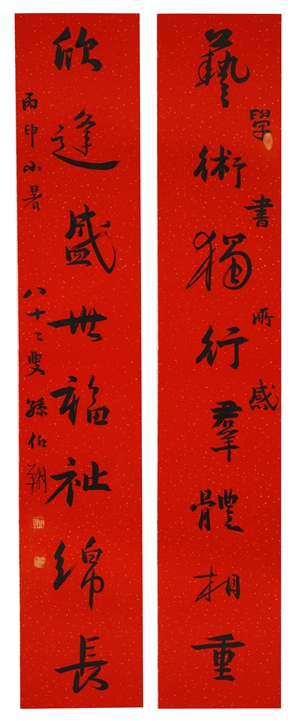 藝術獨行羣體相重
學書所感
欣逢盛世福祉綿長
丙申小暑
八十二叟孫伯翔